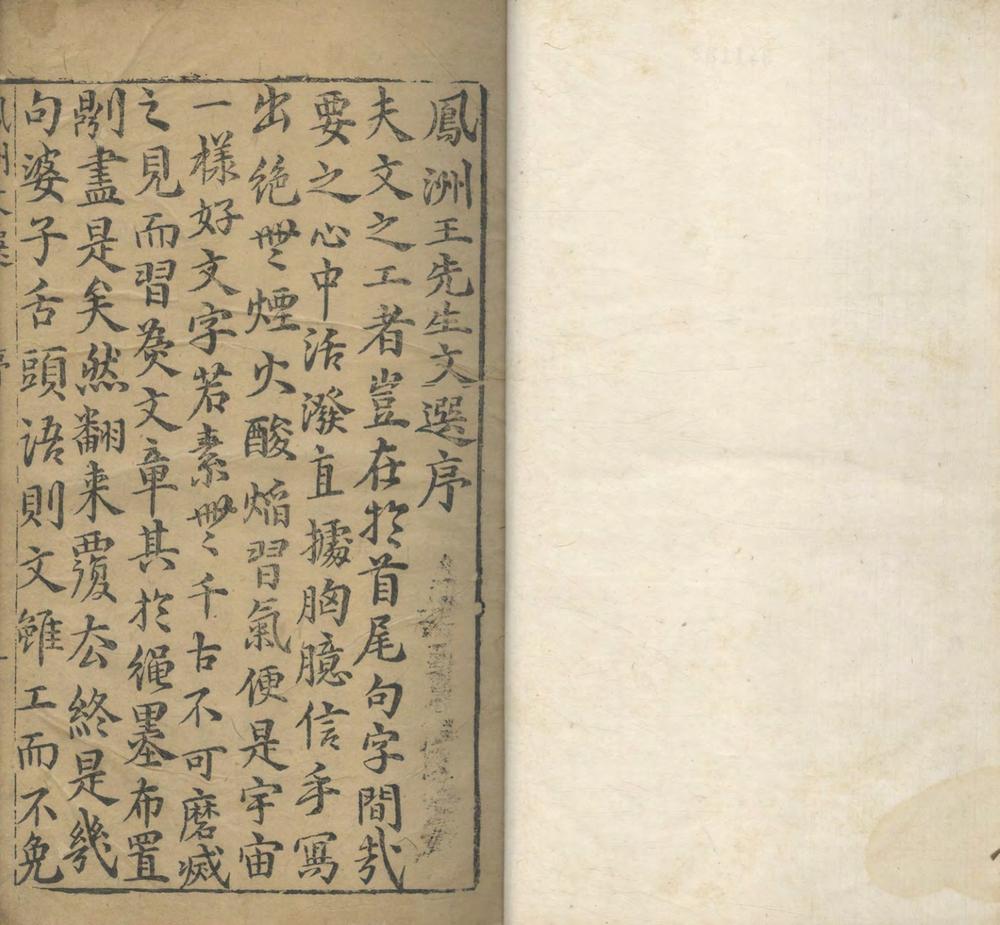 鳳洲王先生文選序
夫文之工者豈在扵首尾句字間哉
要之心中活潑直據胸臆信手寫
出絶無煙火酸焰習氣便是宇宙
一樣好文字若素無千古不可磨滅
之見而習為文章其扵繩墨布置
𠟭盡是矣然翻来覆去終是幾
句婆子舌頭語則文雖工而不免